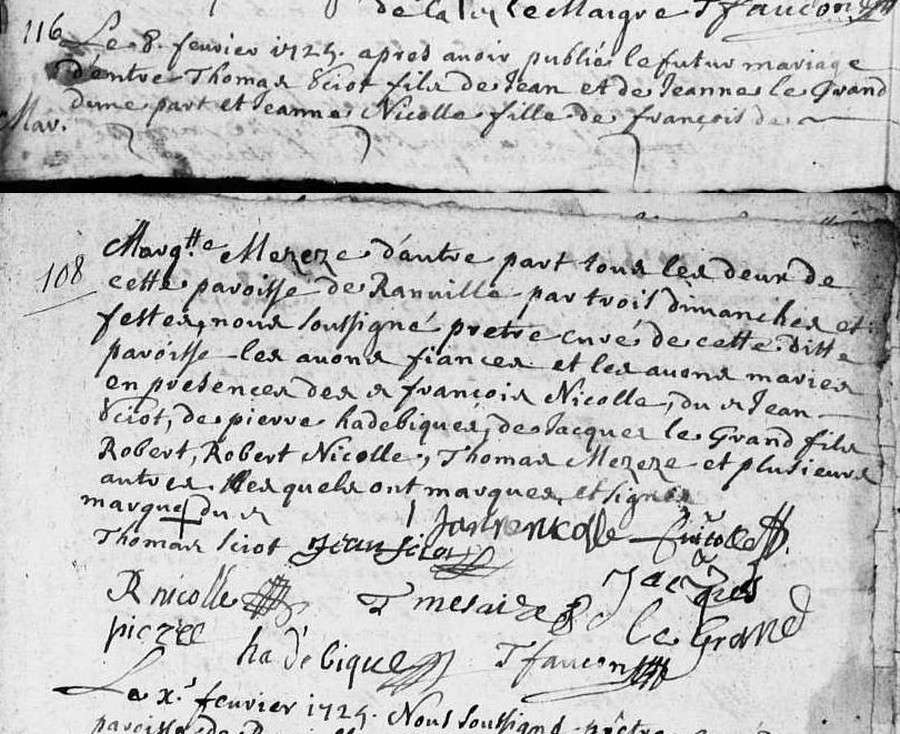 de la le Maigre T faucon
116
Le 8. feurier 1725. apres auoir publié le futur mariage
d'entre Thomas Sciot fils de Jean et de Jeanne le Grand
dune part et Jeanne Nicolle fille de françois de
Mar.
108
Marg.tte Mezeze d'autre part tous les deux de
cette paroisse de Ranuille par trois dimanches et
festes, nous soussigné pretre curé de cette ditte
paroisse les auons fiances et les auons maries
en presences des s françois Nicolle, du s Jean
Sciot, de pierre hadebiques, de Jacques le Grand fils
Robert, Robert Nicolle, Thomas Mezeze et plusieurs
autres lesquels ont marques et signés
marque du s
Thomas Sciot Jean Sciot nicolle nicolle
R nicolle T mesaize Jacques
pierre le Grand
ha debique T faucon
Le x.e feurier 1725. Nous soussigné prêtre
paroisse de